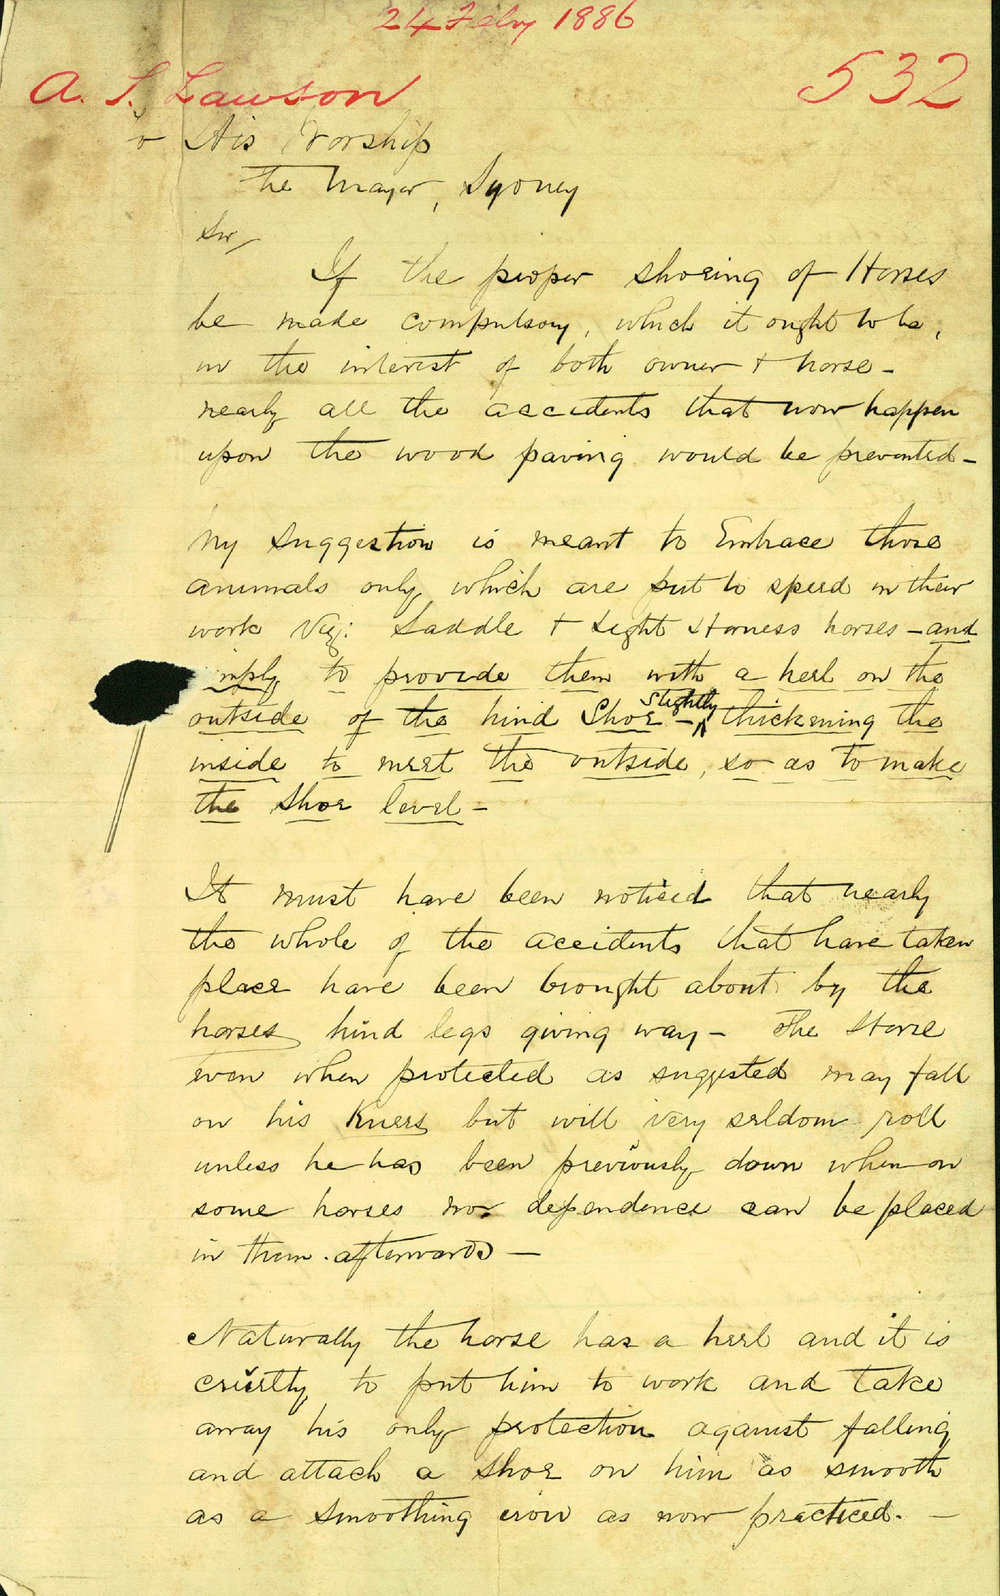 24 Feby 1886
532
A. S. Lawson
To His Worship
The Mayor, Sydney
Sir/
If the proper shoeing of Horses
be made compulsory, which it ought to be,
in the interest of both owner & horse -
nearly all the accidents that now happen
upon the wood paving would be prevented -
My suggestion is meant to Embrace those
animals only which are put to speed in their
work Viz: Saddle & Light Harness horses - and
simply to provide them with a heel on the
outside of the hind Shoe - slightly thickening the
inside to meet the outside, so as to make
the Shoe level -
It must have been noticed that nearly
the whole of the accidents that have taken
place have been brought about by the
horses hind legs giving way - The Horse
even when protected as suggested may fall
on his Knees but will very seldom roll
unless he has been previously down when on
some horses no dependence can be placed
in them afterwards -
Naturally the horse has a heel and it is
cruelty to put him to work and take
away his only protection against falling
and attach a Shoe on him as smooth
as a smoothing iron as now practiced. -